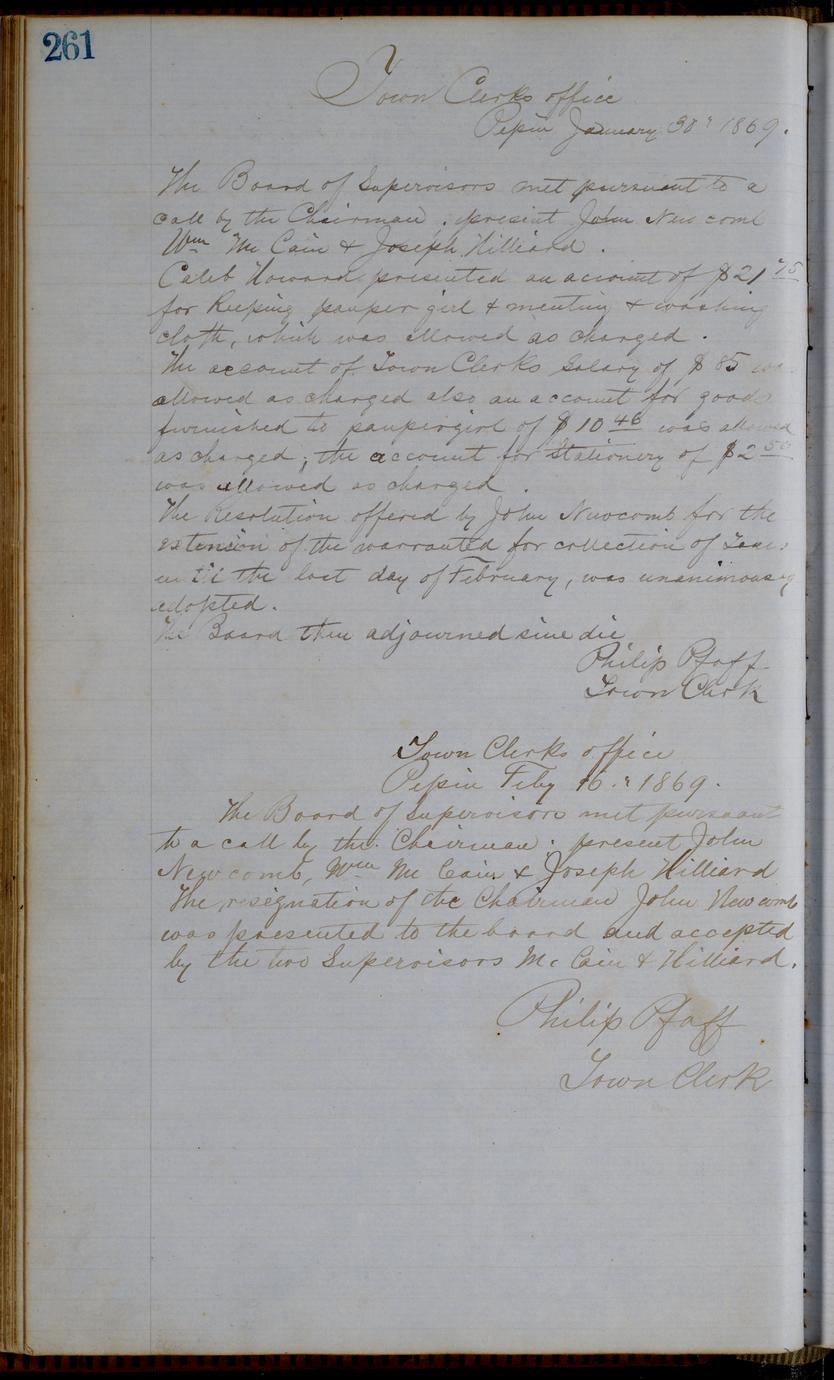 261
Town Clerks office
Pepin January 30" 1869.
The Board of Supervisors met pursuant to a
call by the Chairman; present John Newcomb
Wm Mc Cain & Joseph Hilliard.
Caleb Howard presented an account of $21 75
for Keeping pauper girl & menting & washing
cloth, which was allowed as charged.
The account of Town Clerks Salary of $85 was
allowed as charged also an account for goods
furnished to paupergirl of $10 46 was allowed
as charged; the account for Stationery of $2 50
was allowed as charged.
The Resolution offered by John Newcomb for the
extension of the warranted for collection of Taxes
until the last day of February, was unanimously
adopted.
The Board then adjourned sine die
Philip Pfaff
Town Clerk
Town Clerks office
Pepin Feby 16." 1869.
The Board of Supervisors met pursuant
to a call by the Chairman; present John
Newcomb, Wm Mc Cain & Joseph Hilliard
The resignation of the Chairman John Newcomb
was presented to the board and accepted
by the two Supervisors Mc Cain & Hilliard.
Philip Pfaff
Town Clerk